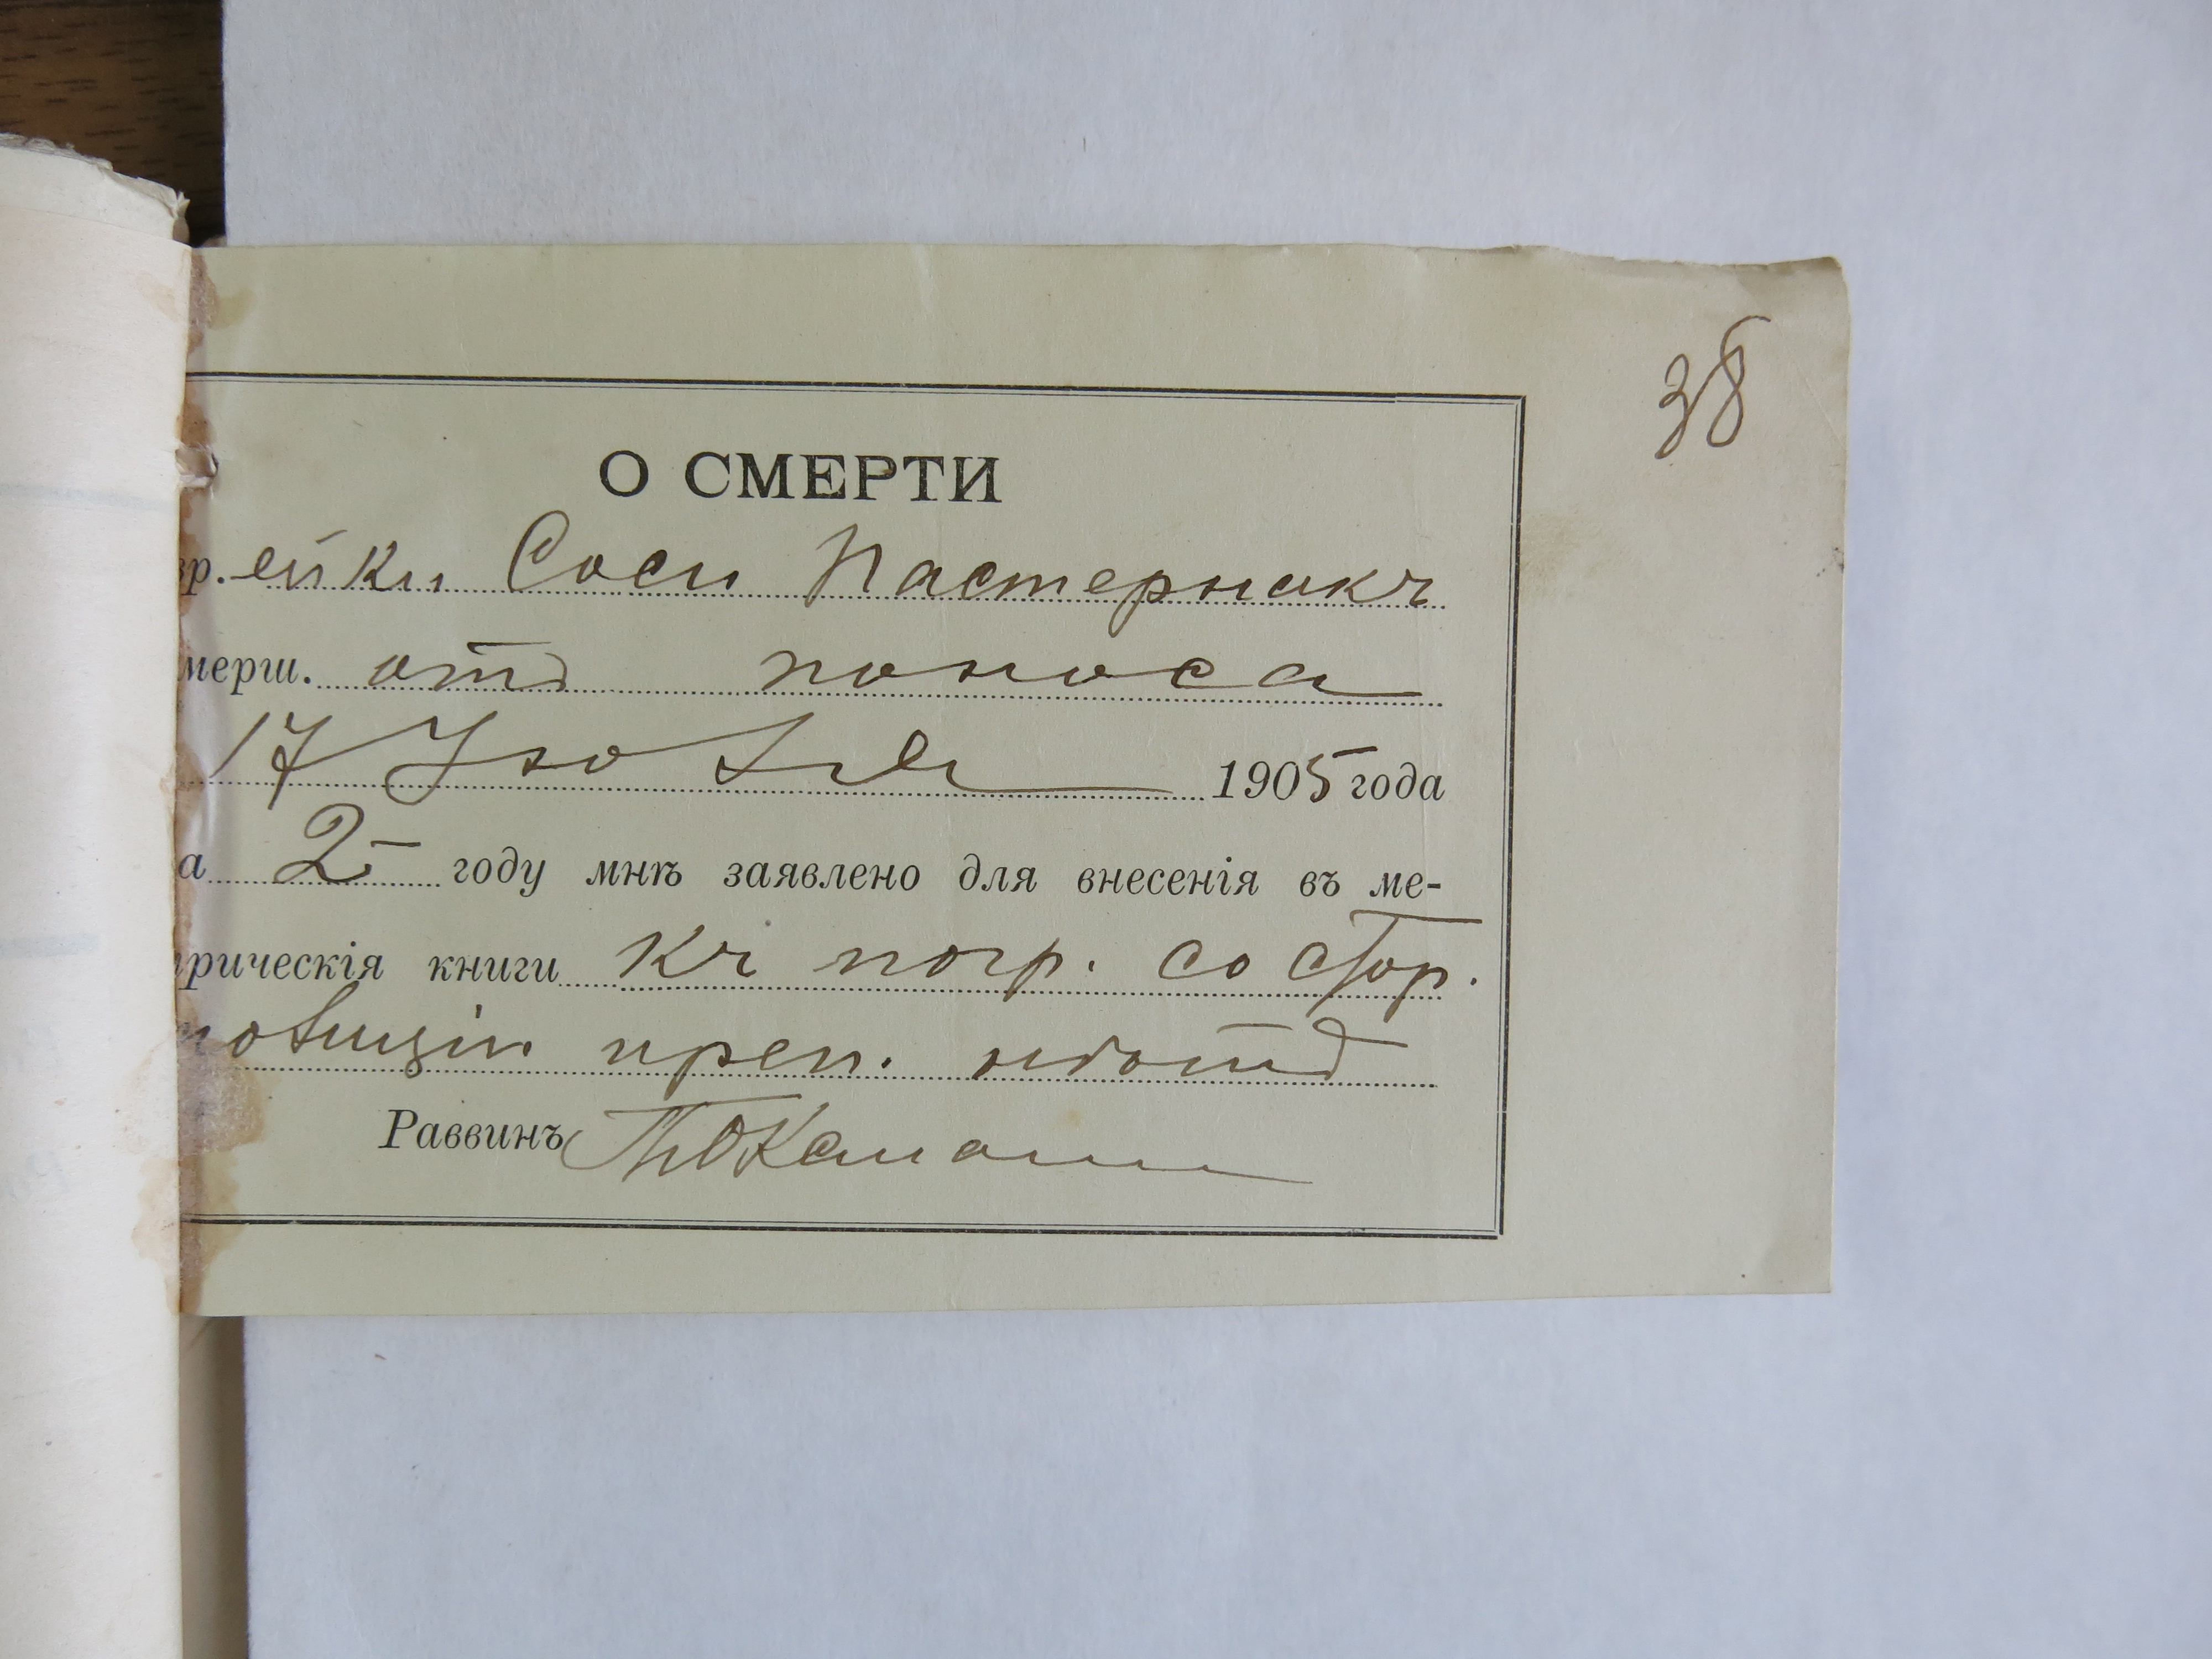 38
О СМЕРТИ
вр. ейки Соси Пастернакъ
мерш. отъ поноса
17 Іюля 1905 года
а 2 году мнѣ заявлено для внесенія въ ме-
рическія книги къ погр. со стор.
полиціи преп. нѣтъ
Раввинъ